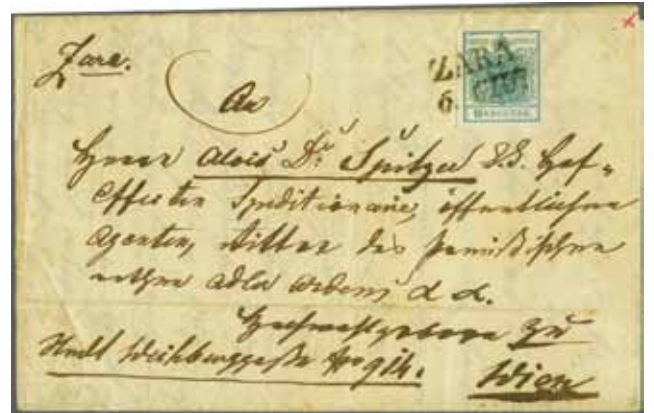 Zara.
ZARA
6. GIU
An
Herrn Alois Dr. Spitzer k.k. Hof-
Effecten Speditionär, öffentlicher
Agenten, Ritter des
rothen Adler Ordens d. d.
Hochwohlgeboren zu
Stadt Weihburggasse No 914.
Wien